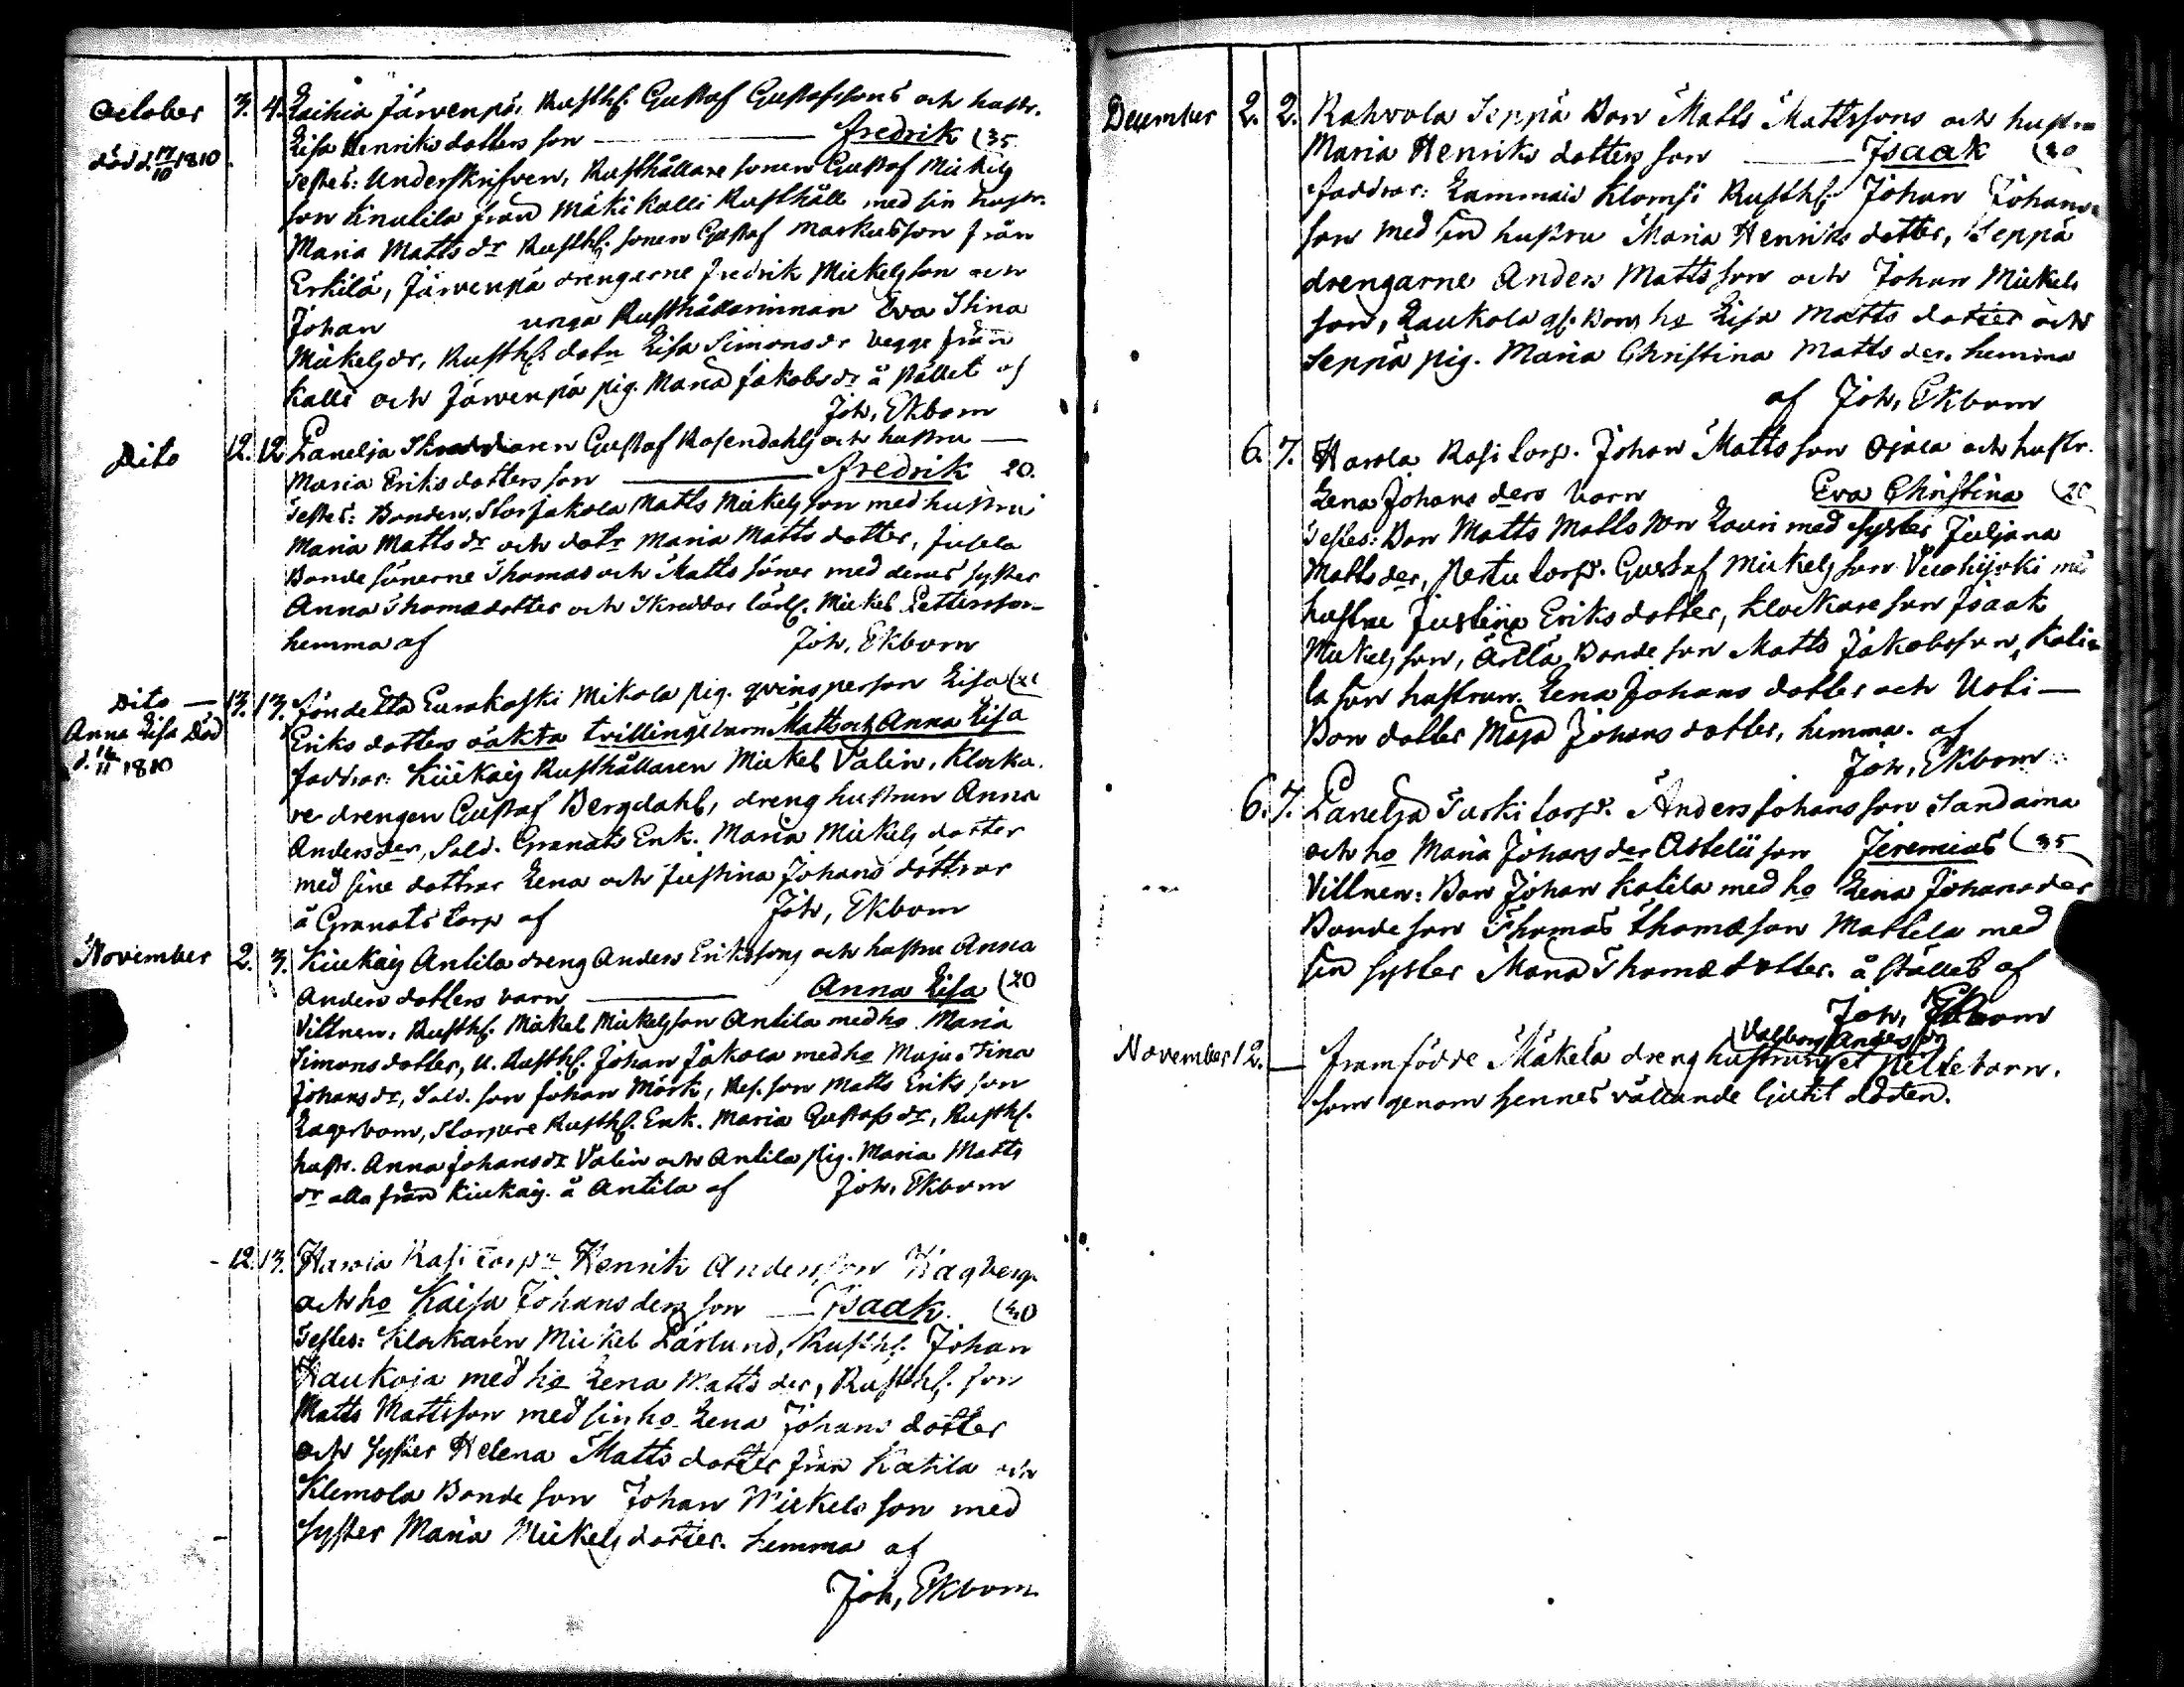 October 3. 4. Laihia Järvenpä, Rusthl: Gustaf Gustafssons och hustr.
död d. 17/10 1810 Lisa Henriks dotters son — Fredrik (35
Testes: Underskrifven, Rusthållare sonen Gustaf Mickels
son Knutila från Mäki Kalli Rusthåll med sin hustr.
Maria Matts dr Rusthl: sonen Gustaf Markusson från
Erkilä, Järvenpä drengarne Fredrik Mickelsson och
Johan unga Rusthållarinnan Eva Stina
Mickels dr, Rusthl: dotn Lisa Simons dr begge från
Kalli och Järvenpä pig. Maria Jakobs dr å stället af
Joh, Ekbom
Dito 12. 12 Panelja Skreddaren Gustaf Rosendahls och hustru —
Maria Eriksdotters son — Fredrik 20.
Testes: Bonden, Storjakola Matts Mickelsson med hustru
Maria Matts dr och dotr Maria Matts dotter, Jusela
Bondesönerne Thomas och Matts söner med deras syster
Anna Thomædotter och Skreddar lärl. Mickel Pettersson
hemma af Joh, Ekbom
Dito — 13. 13. Eurakoski Mikola pig. qvinsperson Lisa
Anna Lisa död Eriks dotters oäkta tvillinge barn Matts och Anna Lisa
d. 11 1810 Faddrar: Kiukais Rusthållaren Mickel Valin, Klocka-
re drengen Gustaf Bergdahl, dreng hustrun Anna
Anders der, Sold. Granats Enk. Maria Mickels dotter
med sine dottrar Lena och Justina Johans döttrar
å Granats torp af Joh, Ekbom
November 2. 3. Kiukais Antila dreng Anders Erikssons och hustru Anna
Anders dotters barn — Anna Lisa (20
Vittnen: Rusthl. Mickel Mickelsson Antila med ho Maria
Simonsdotter, U. Rusthl. Johan Jakola med ho Maja Stina
Johans dr, Sold. son Johan Mörk, Res. son Matts Eriks son
Lagerbom, Rusthl. Enk. Maria Gustafs dr, Rusthl.
hustr. Anna Johans dr Valin och Antila pig. Maria Matts
dr alla från Kiukais. å Antila af Joh, Ekbom
12. 13. Harola Rasi torp: Henrik Andersson Hagberg
och ho Kaisa Johans ders son — Isaak. (40
Testes: Klockaren Mickel Pärlund, Rusthl. Johan
Haukoja med ho Lena Matts der, Rusthl. son
Matts Mattsson med sin ho Lena Johans dotter
och syster Helena Matts dotter från Katila och
Klemola Bonde son Johan Mickels son med
syster Maria Mickels dotter. hemma af
Joh, Ekbom
December 2. 2. Rahvola Seppä Bon Matts Mattssons och hustru
Maria Henriks dotters son — Isaak
Faddrar: Lammais Klomsi Rusthl Johan Johans
son med sin hustru Maria Henriks dotter, Seppä
drengarne Anders Mattsson och Johan Mickels
son, Laukola gl. Bons ho Lisa Matts dotter och
Seppä pig. Maria Christina Matts der. hemma
af Joh, Ekbom
6. 7. Harola Rasi torp. Johan Matts son Ojala och hustr.
Lena Johans ders barn Eva Christina (20
Testes: Bon Matts Matts son Lauri med syster Juljana
Matts der, Perttu torp. Gustaf Mickelsson Vuohijoki med
hustru Justina Eriks dotter, Klockare son Isaak
Mickelsson, Äntlä Bonde son Matts Jakobsson, Kati
la son hustrun Lena Johans dotter och Uoti —
Bon dotter Maja Johans dotter, hemma. af
Joh, Ekbom
6. 7. Panelja Turki torp. Anders Johansson Sandama
och ho Maria Johans der son Jeremias (35
Vittnen: Bon Johan Katila med ho Lena Johans der
Bonde son Thomas Thomæson Mattila med
sin syster Maria Thomædotter. å stället af
Joh, Ekbom
Valborg Anders
November 12. — Framfödde Mäkelä dreng hustrun et piltebarn.
som genom hennes vållande ljutit döden.